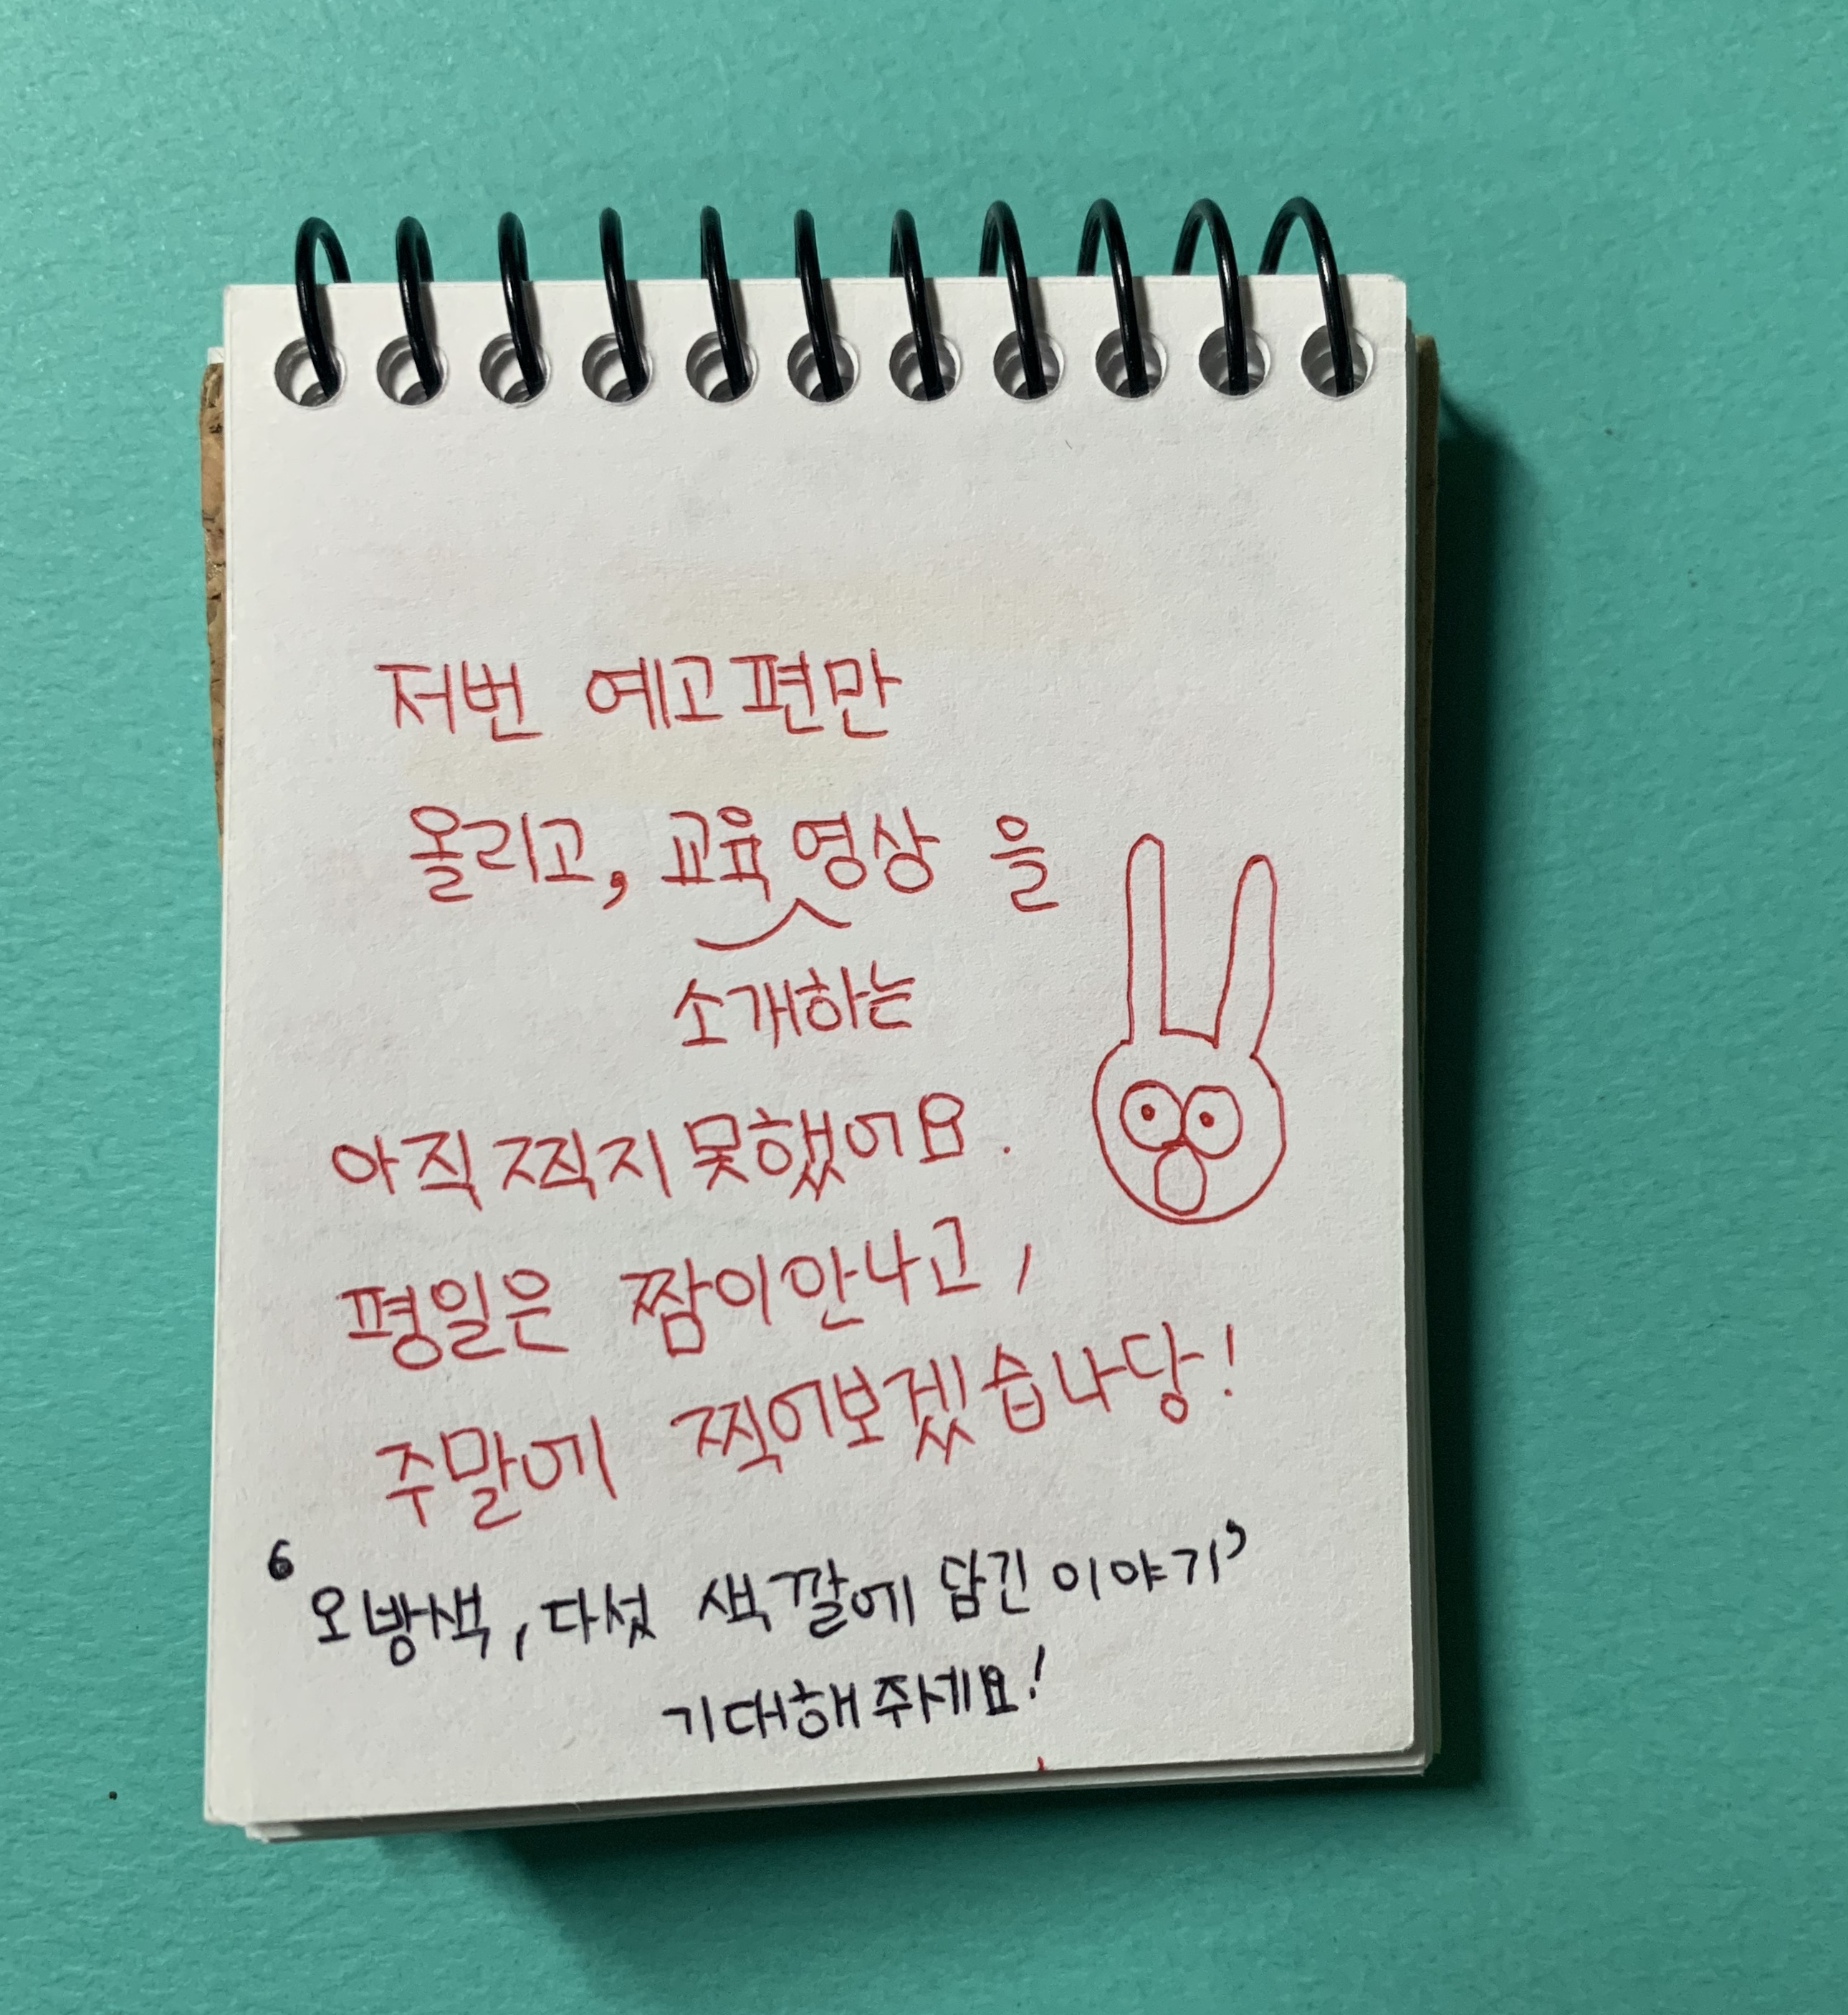 저번 예고편만
올리고, 교육 영상 을
소개하는
아직 찍지 못했어요.
평일은 짬이 안나고,
주말에 찍어보겠습니당!
‘오방색, 다섯 색깔에 담긴 이야기’
기대해주세요!